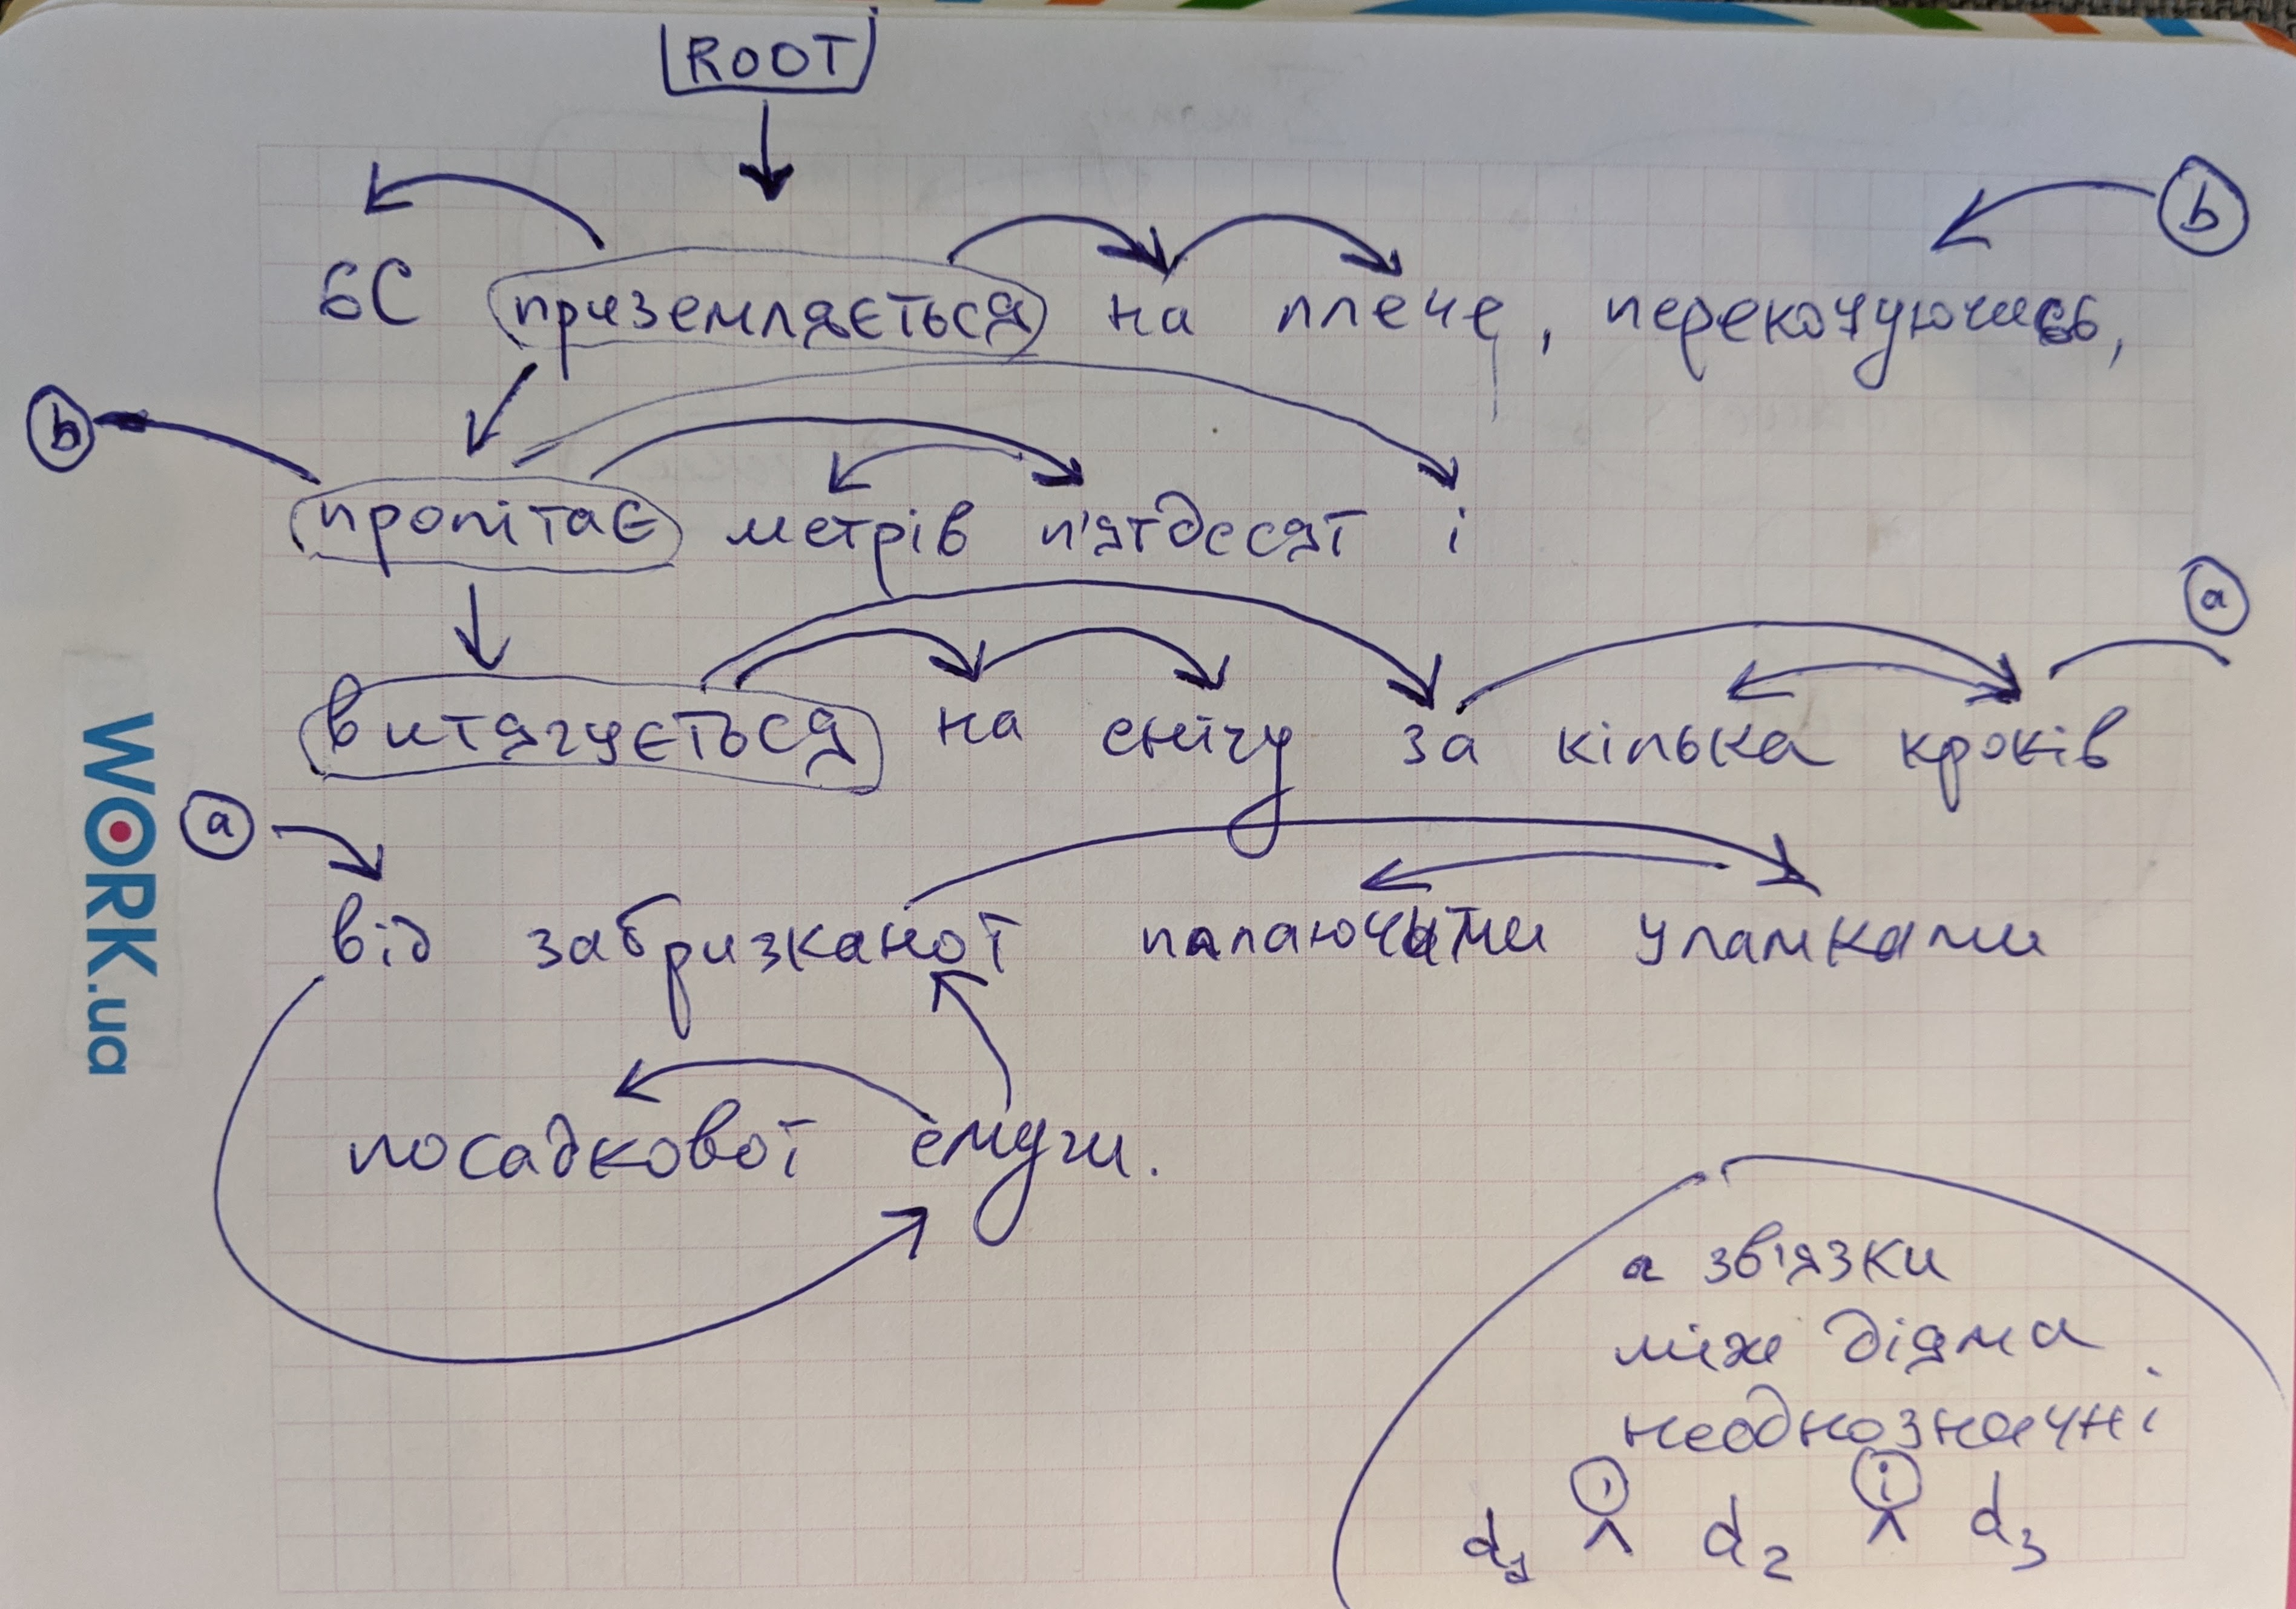 ROOT
b
БС приземляється на плече, перекочуючись,
b
пролітає метрів п'ятдесят і
a
витягується на снігу за кілька кроків
a
від забризканої палаючими уламками
посадкової смуги.
WORK.ua
а зв'язки
між діяма
неоднозначні
d1 , ^ d2 і ^ d3